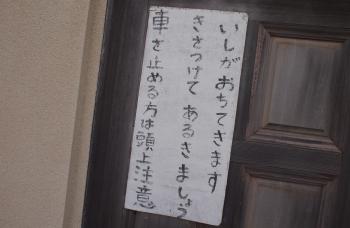 いしが おちてきます
きさつけて あるきましょう
車を止める方は頭上注意